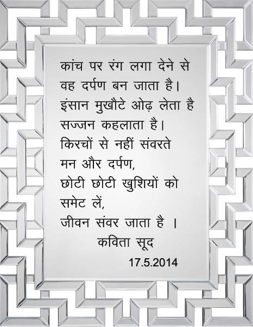 कांच पर रंग लगा देने से
वह दर्पण बन जाता है।
इंसान मुखौटे ओढ़ लेता है
सज्जन कहलाता है।
किरचों से नहीं संवरते
मन और दर्पण,
छोटी छोटी खुशियों को
समेट लें,
जीवन संवर जाता है ।
कविता सूद
17.5.2014